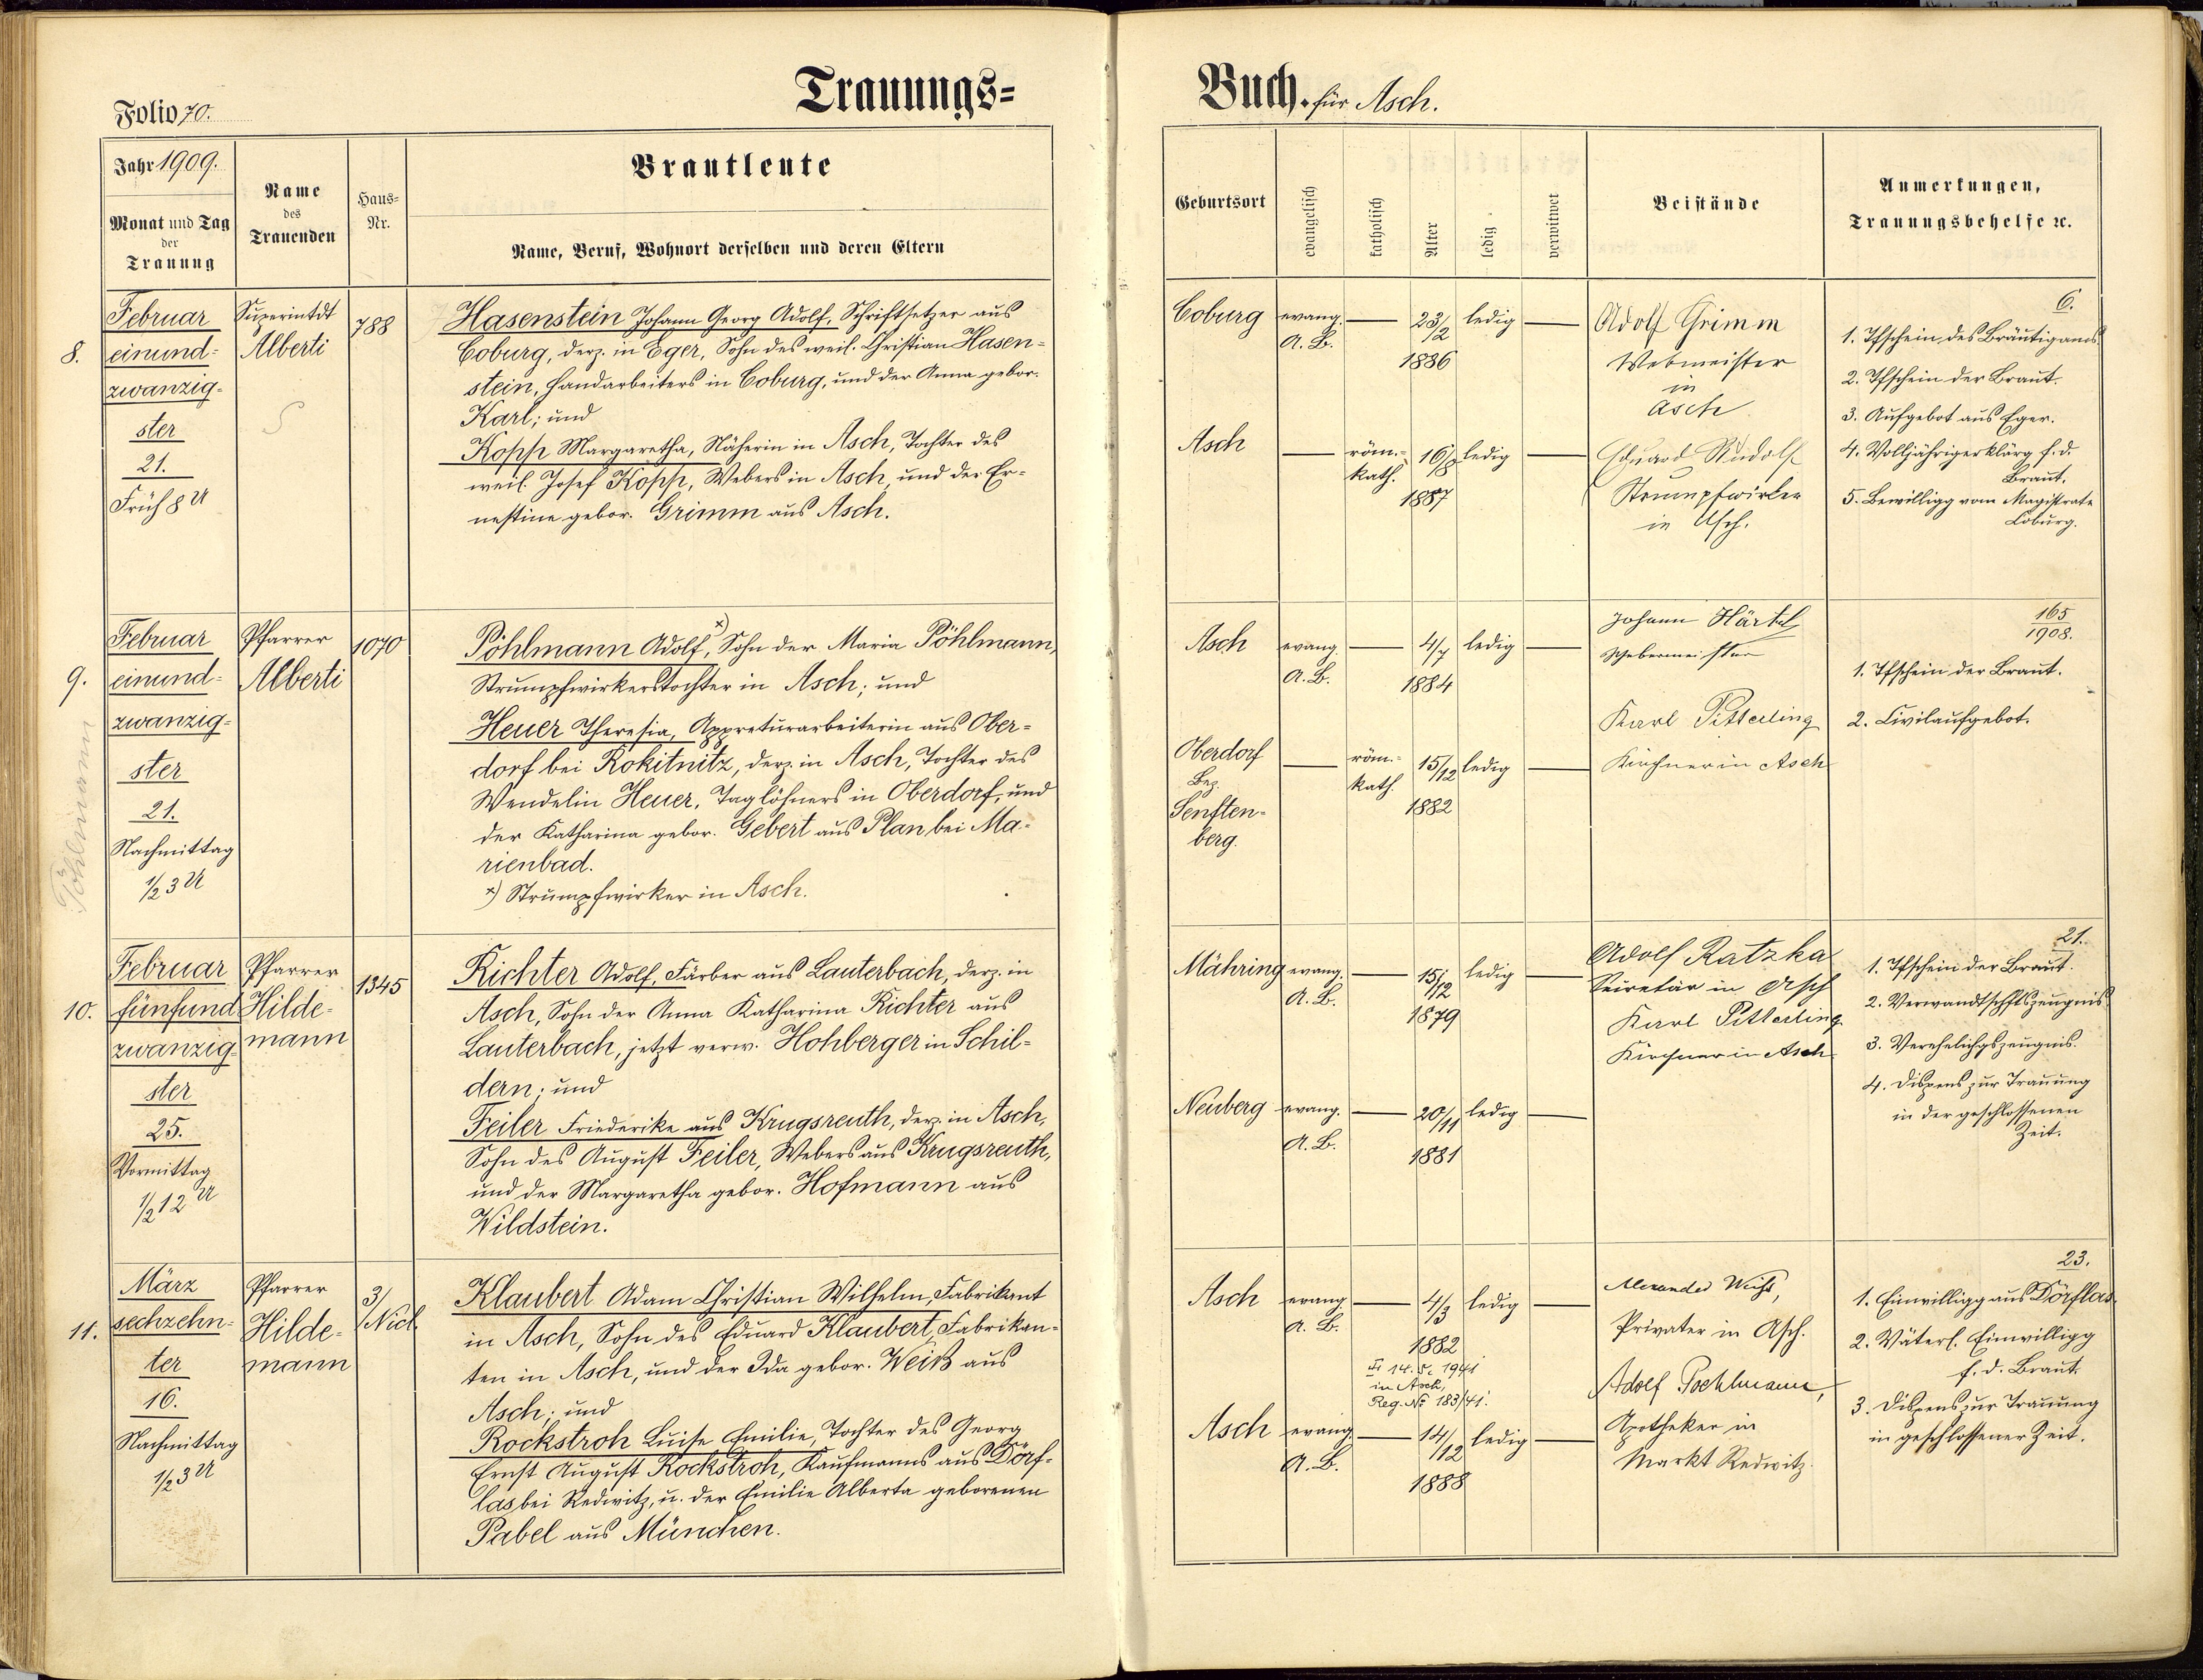 Folio 70.
Trauungs=
Buch. für Asch.
Jahr 1909.
Monat und Tag
der
Trauung
Name
des
Trauenden
Haus=
Nr.
Brautleute
Name, Beruf, Wohnort derselben und deren Eltern
Geburtsort
evangelisch
katholisch
Alter
ledig
verwitwet
Beistände
Anmerkungen,
Trauungsbehelfe ꝛc.
8.
Februar
einund-
zwanzig-
ster
21.
Früh 8 U
Superintdt
Alberti
788
Hasenstein Johann Georg Adolf, Schriftsetzer aus
Coburg, derz. in Eger, Sohn des weil. Christian Hasen-
stein, Handarbeiters in Coburg, und der Anna gebor.
Karl; und
Kopp Margaretha, Näherin in Asch, Tochter des
weil. Josef Kopp, Webers in Asch, und der Er-
nestine gebor. Grimm aus Asch.
Coburg
evang.
A. B.
23/2
1886
ledig
Asch
röm.-
kath.
16/8
1887
ledig
Adolf Grimm
Webmeister
in
Asch
Eduard Rudolf
Strumpfwirker
in Asch.
6.
1. Tfschein des Bräutigams.
2. Tfschein der Braut.
3. Aufgebot aus Eger.
4. Volljährigerklärg f. d.
Braut.
5. Bewilligg vom Magistrate
Coburg.
9.
Pöhlmann
Februar
einund-
zwanzig-
ster
21.
Nachmittag
1/2 3 U
Pfarrer
Alberti
1070
Pöhlmann Adolf, x) Sohn der Maria Pöhlmann,
Strumpfwirkerstochter in Asch; und
Heuer Theresia, Appreturarbeiterin aus Ober-
dorf bei Rokitnitz, derz. in Asch, Tochter des
Wendelin Heuer, Taglöhners in Oberdorf, und
der Katharina gebor. Gebert aus Plan bei Ma-
rienbad.
x) Strumpfwirker in Asch.
Asch
evang.
A. B.
4/7
1884
ledig
Oberdorf
Bez.
Senften-
berg.
röm.-
kath.
15/12
1882
ledig
Johann Härtel
Webermeister
Karl Pitterling
Kirchner in Asch
165
1908.
1. Tfschein der Braut.
2. Civilaufgebot.
10.
Februar
fünfund
zwanzig-
ster
25.
Vormittag
1/2 12 U
Pfarrer
Hilde-
mann
1345
Richter Adolf, Färber aus Lauterbach, derz. in
Asch, Sohn der Anna Katharina Richter aus
Lauterbach, jetzt verw. Hohberger in Schil-
dern; und
Feiler Friederike aus Krugsreuth, derz. in Asch,
Sohn des August Feiler, Webers aus Krugsreuth,
und der Margaretha gebor. Hofmann aus
Wildstein.
Mähring
evang.
A. B.
15/12
1879
ledig
Neuberg
evang.
A. B.
20/11
1881
ledig
Adolf Ratzka
Sekretär in Asch
Karl Pitterling
Kirchner in Asch
21.
1. Tfschein der Braut.
2. Verwandtschftszeugnis
3. Verehelichgszeugnis.
4. Dispens zur Trauung
in der geschlossenen
Zeit.
11.
März
sechzehn-
ter
16.
Nachmittag
1/2 3 U
Pfarrer
Hilde-
mann
3/
Nicl.
Klaubert Adam Christian Wilhelm, Fabrikant
in Asch, Sohn des Eduard Klaubert, Fabrikan-
ten in Asch, und der Ida gebor. Weiß aus
Asch; und
Rockstroh Luise Emilie, Tochter des Georg
Ernst August Rockstroh, Kaufmanns aus Dörf-
las bei Redwitz, u. der Emilie Alberta geborenen
Pabel aus München.
Asch
evang.
A. B.
4/3
1882
14. 5. 1941
in Asch,
Reg. No 183/41.
ledig
Asch
evang.
A. B.
14/12
1888
ledig
Alexander Weiß,
Privater in Asch.
Adolf Poehlmann,
Apotheker in
Markt Redwitz.
23.
1. Einwilligg aus Dörflas.
2. Väterl. Einwilligg
f. d. Braut.
3. Dispens zur Trauung
in geschlossener Zeit.